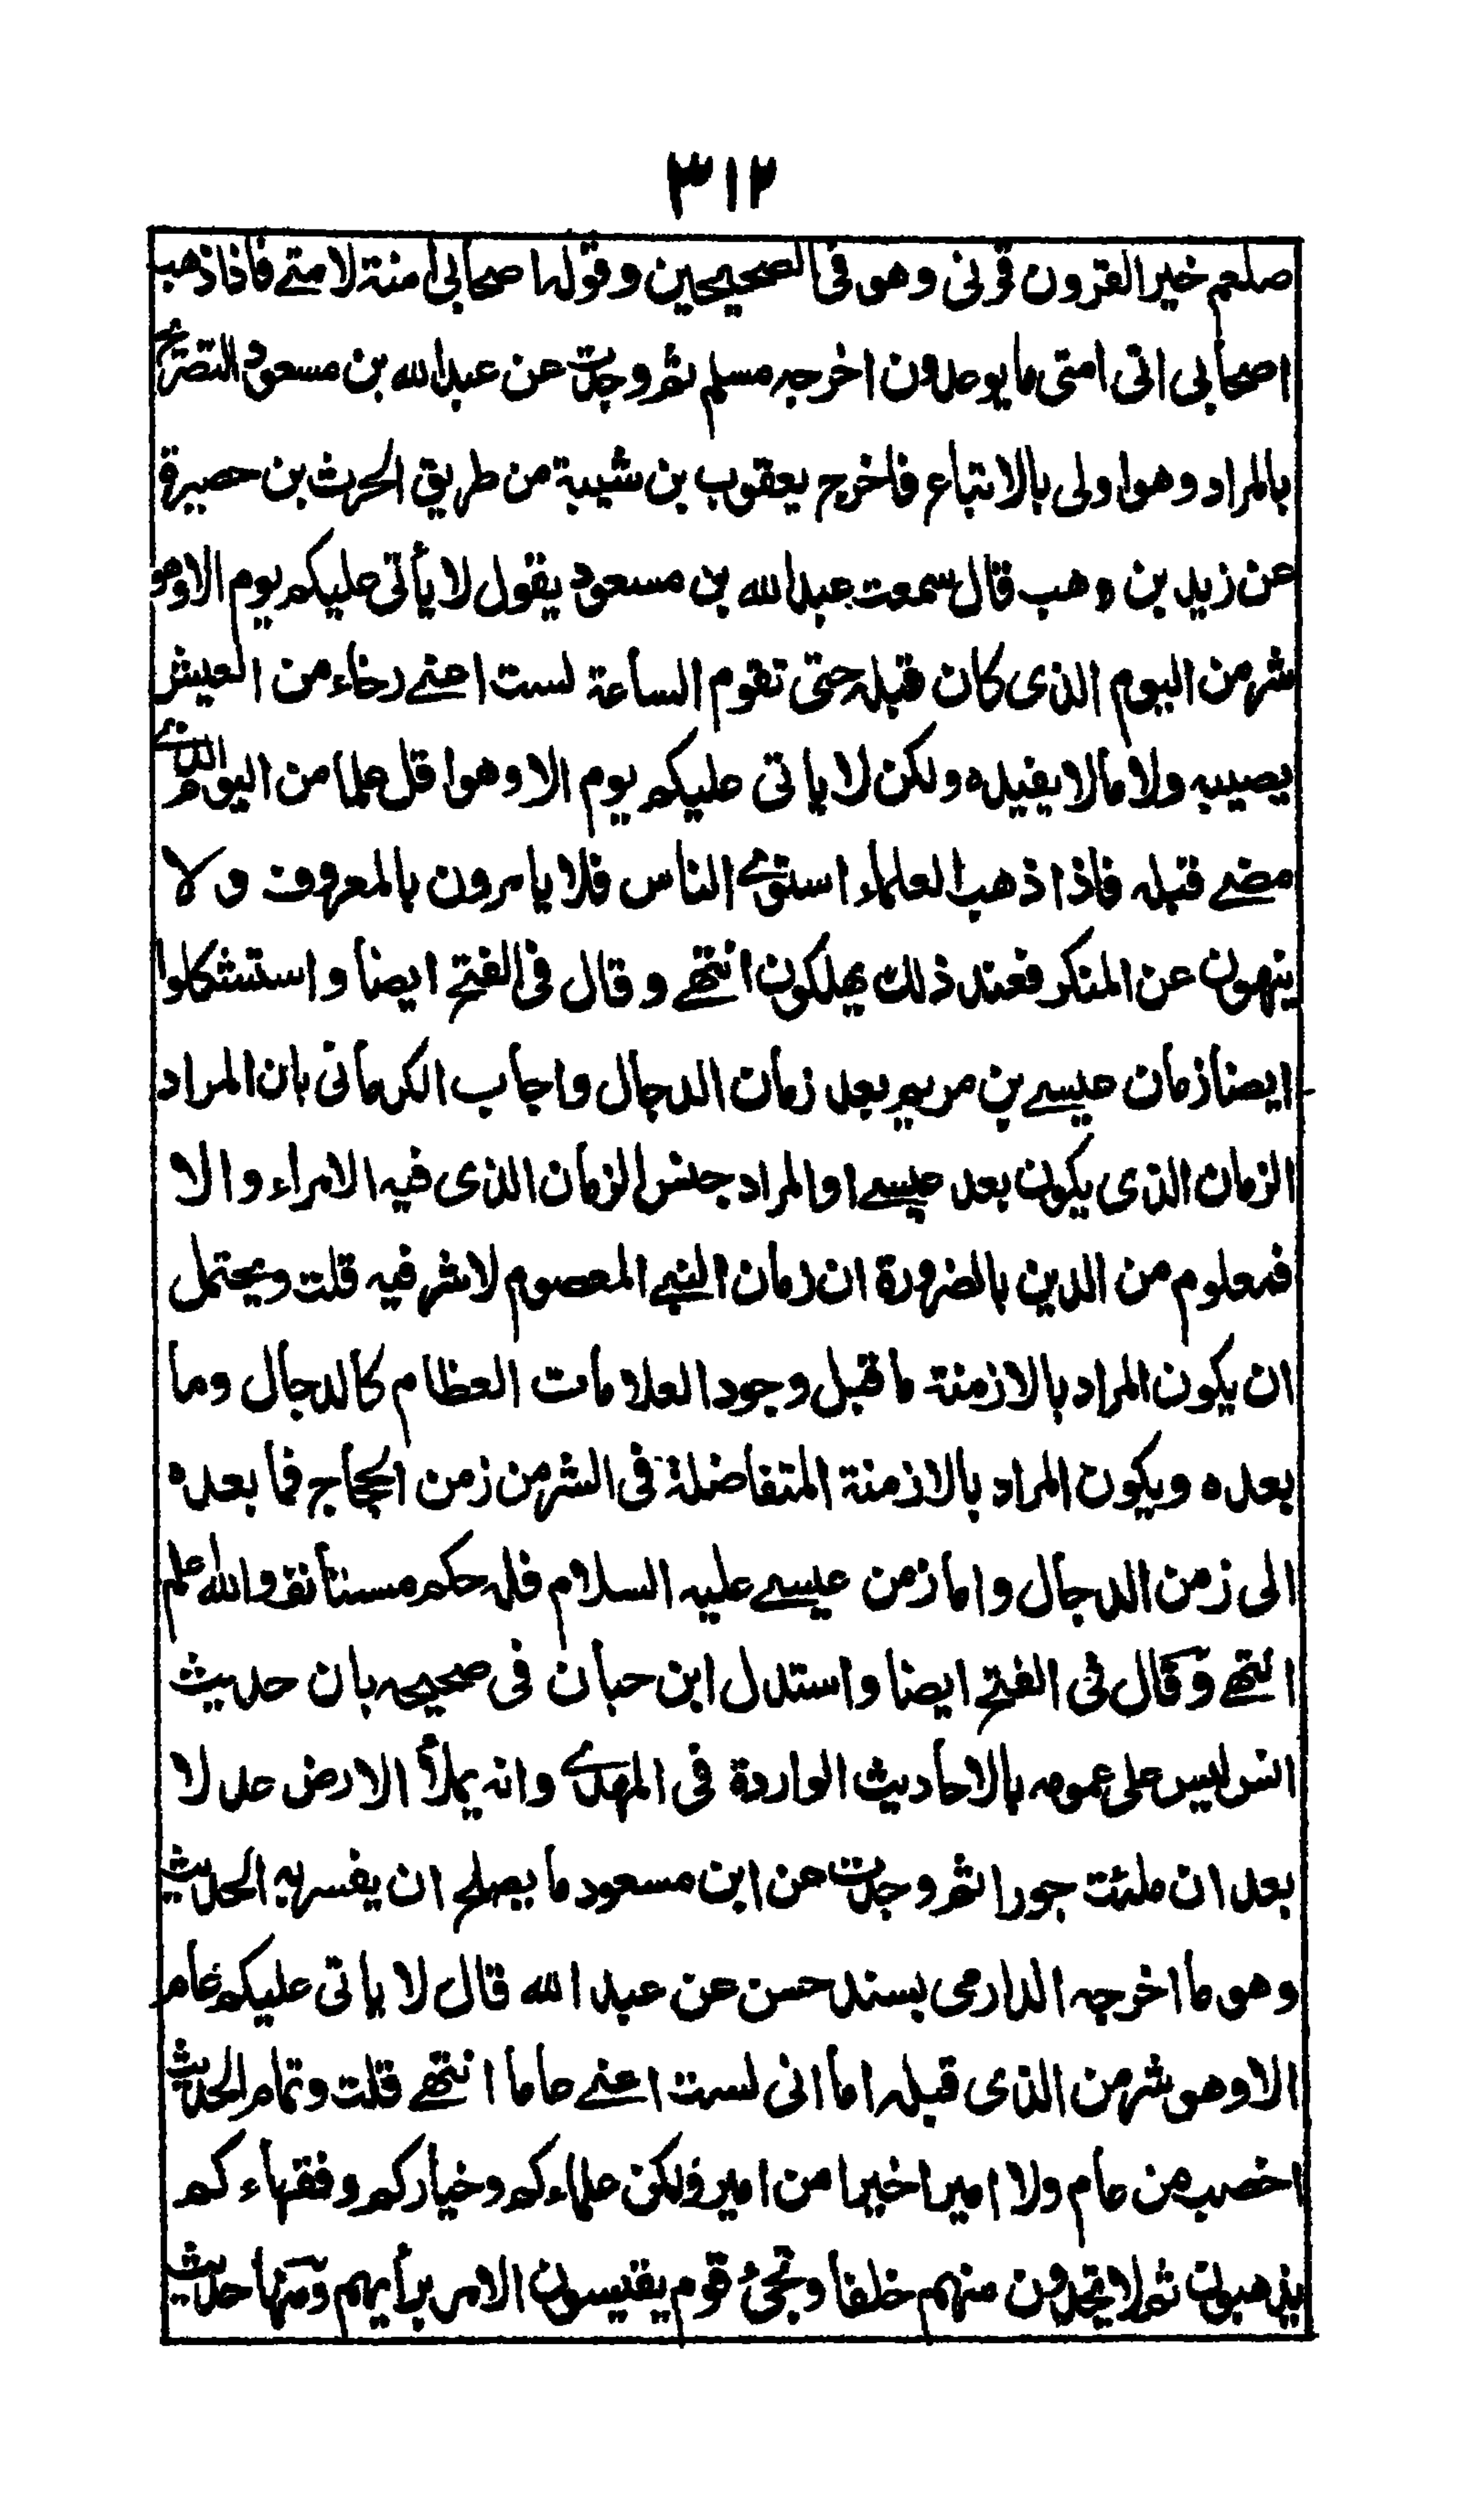 ٣١٢
صلعم خير القرون قرني وهو في الصحيحين وقوله اصحابي امنة لامتے فاذا ذهب
اصحابي اتى امتى ما يوعدون اخرجه مسلم ثم وجدت عن عبد الله بن مسعود التصريح
بالمراد وهو اولى بالاتباع فاخرج يعقوب بن شيبة من طريق الحرث بن حصيرة
عن زيد بن وهب قال سمعت عبد الله بن مسعود يقول لا يأتى عليكم يوم الا وهو
شر من اليوم الذى كان قبله حتى تقوم الساعة لست اعنے رخاء من العيش
يصيبه ولا مالا يفيده ولكن لا ياتى عليكم يوم الا وهو اقل علما من اليوم الذي
مضے قبله فاذا ذهب العلماء استوے الناس فلا يامرون بالمعروف ولا
ينهون عن المنكر فعند ذلك يهلكون انتهے وقال فى الفتح ايضا واستشكلوا
ايضا زمان عيسے بن مريم بعد زمان الدجال واجاب الكرمانى بان المراد
الزمان الذى يكون بعد عيسے او المراد جنس الزمان الذى فيه الامراء والا
فمعلوم من الدين بالضرورة ان زمان النبے المعصوم لا شر فيه قلت ويحتمل
ان يكون المراد بالازمنة ما قبل وجود العلامات العظام كالدجال وما
بعده ويكون المراد بالازمنة المتفاضلة فى الشر من زمن الحجاج فما بعده
الى زمن الدجال واما زمن عيسے عليه السلام فله حكم مستأنف والله اعلم
انتهے وقال فى الفتح ايضا واستدل ابن حبان فى صحيحه بان حديث
انس ليس على عمومه بالاحاديث الواردة فى المهدے وانه يملأ الارض عدلا
بعد ان ملئت جورا ثم وجدت عن ابن مسعود ما يصلح ان يفسر به الحديث
وهو ما اخرجه الدارمى بسند حسن عن عبد الله قال لا ياتى عليكم عام
الا وهو شر من الذى قبله اما انى لست اعنے عاما انتهے قلت وتمام الحديث
اخصب من عام ولا اميرا خيرا من امير ولكن علماءكم وخياركم وفقهاءكم
يذهبون ثم لا تجدون منهم خلفا وتجئ قوم يقيسون الامر برأيهم ومنها حديث